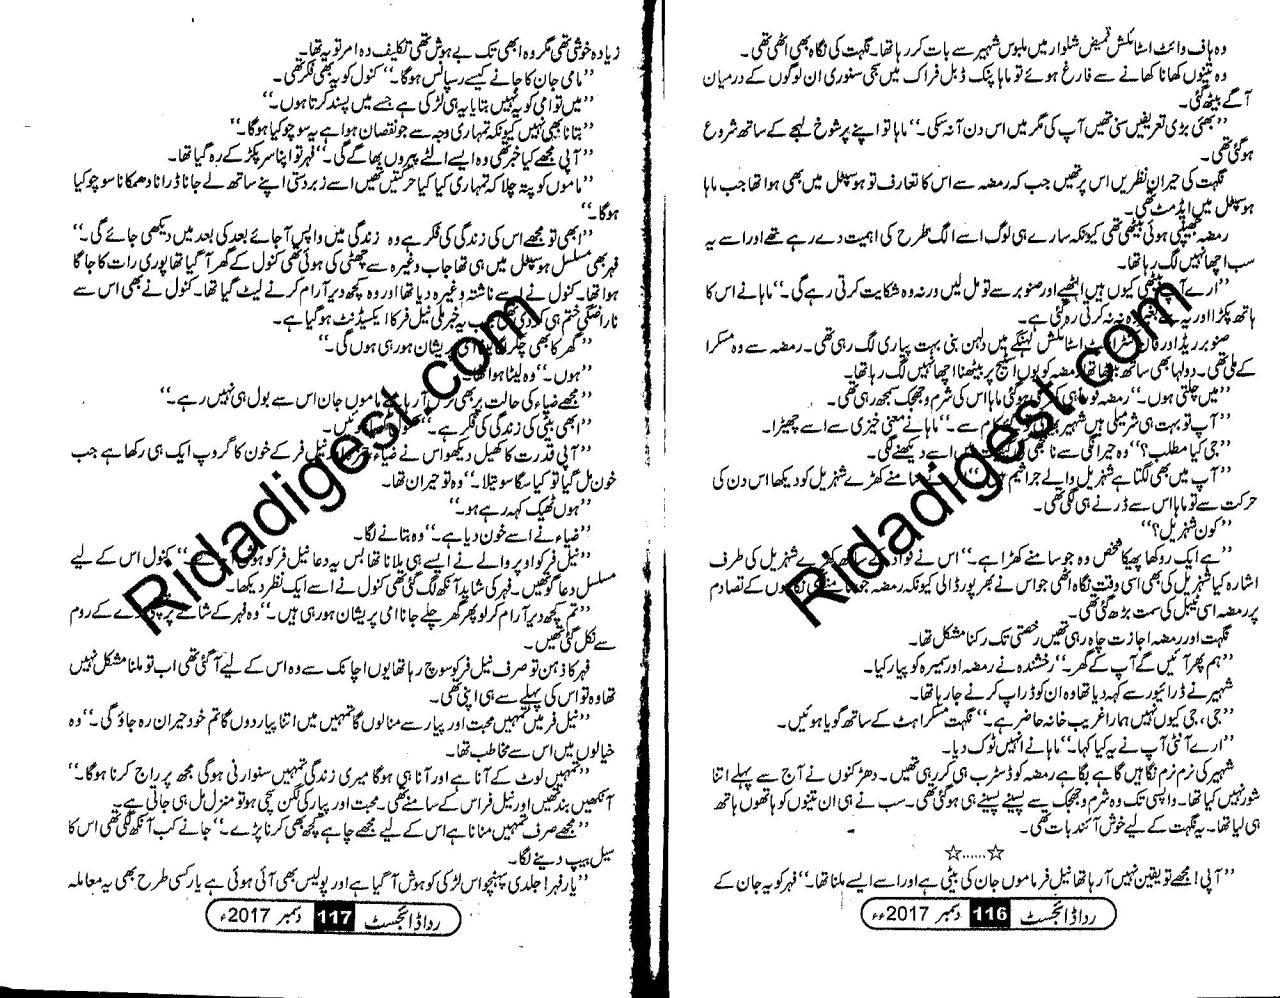 وہ ہاف وائٹ اسٹائلش قمیض شلوار میں ملبوس شہیر سے بات کر رہا تھا۔ نگہت کی نگاہ بھی اٹھی تھی۔
وہ تینوں کھانا کھانے سے فارغ ہوئے تو ماہا پنک ڈبل فراک میں سجی سنوری ان لوگوں کے درمیان
آگے بیٹھ گئی۔
’’بھئی بڑی تعریفیں سنی تھیں آپ کی مگر میں اس دن آ نہ سکی۔‘‘ ماہا تو اپنے پر شوخ لہجے کے ساتھ شروع
ہو گئی تھی۔
نگہت کی حیران نظریں اس پر تھیں جب کہ رمضہ سے اس کا تعارف تو ہوسپٹل میں بھی ہوا تھا جب ماہا
ہوسپٹل میں ایڈمٹ تھی۔
رمضہ جھینپی ہوئی بیٹھی تھی کیونکہ سارے ہی لوگ اسے الگ طرح کی اہمیت دے رہے تھے اور اسے یہ
سب اچھا نہیں لگ رہا تھا۔
’’ارے آپ بیٹھی کیوں ہیں اٹھیے اور صنوبر سے تو مل لیں ورنہ وہ شکایت کرتی رہے گی۔‘‘ ماہا نے اس کا
ہاتھ پکڑا اور یہ نہ نہ کرتی رہ گئی ہے۔
صنوبر ریڈ اور اسٹائلش لہنگے میں دلہن بنی بہت پیاری لگ رہی تھی۔ رمضہ سے وہ مسکرا
کے ملی تھی۔ دولہا بھی ساتھ بیٹھا تھا رمضہ کو یوں اسٹیج پر بیٹھنا اچھا نہیں لگ رہا تھا۔
’’میں چلتی ہوں۔‘‘ رمضہ تو کھڑی ہو گئی ماہا اس کی شرم و جھجک سمجھ رہی تھی۔
’’آپ تو بہت ہی شرمیلی ہیں شہیر سے۔‘‘ ماہا نے معنی خیزی سے اسے چھیڑا۔
’’جی کیا مطلب؟‘‘ وہ حیرانگی سے اسے دیکھنے لگی۔
’’آپ میں بھی لگتا ہے شہزیل والے جراثیم سامنے کھڑے شہزیل کو دیکھا اس دن کی
حرکت سے تو ماہا اس سے ڈرنے ہی لگی تھی۔
’’کون شہزیل؟‘‘
’’ہے ایک روکھا پھیکا شخص وہ جو سامنے کھڑا ہے۔‘‘ اس نے شہزیل کی طرف
اشارہ کیا شہزیل کی بھی اسی وقت نگاہ اٹھی جو اس نے بھرپور ڈالی کیونکہ رمضہ نگاہوں کے تصادم
پر رمضہ اسی ٹیبل کی سمت بڑھ گئی تھی۔
نگہت اور رمضہ اجازت چاہ رہی تھیں رخصتی تک رکنا مشکل تھا۔
’’ہم پھر آئیں گے آپ کے گھر۔‘‘ رخشندہ نے رمضہ اور سمیرہ کو پیار کیا۔
شہیر نے ڈرائیور سے کہہ دیا تھا وہ ان کو ڈراپ کرنے جا رہا تھا۔
’’جی، جی کیوں نہیں ہمارا غریب خانہ حاضر ہے۔‘‘ نگہت مسکراہٹ کے ساتھ گویا ہوئیں۔
’’ارے آنٹی آپ نے یہ کیا کہا۔‘‘ ماہا نے انہیں ٹوک دیا۔
شہیر کی نرم نرم نگاہیں گاہے بگاہے رمضہ کو ڈسٹرب ہی کر رہی تھیں۔ دھڑکنوں نے آج سے پہلے اتنا
شور نہیں کیا تھا۔ واپسی تک وہ شرم و جھجک سے پسینے پسینے ہی ہو گئی تھی۔ سب نے ہی ان تینوں کو ہاتھوں ہاتھ
ہی لیا تھا۔ یہ نگہت کے لیے خوش آئند بات تھی۔
☆......☆
’’آپی! مجھے تو یقین نہیں آ رہا تھا نیل فر ماموں جان کی بیٹی ہے اور اسے ایسے ملنا تھا۔‘‘ فہر کو یہ جان کے
رداڈائجسٹ 116 دسمبر 2017ء
زیادہ خوشی تھی مگر وہ ابھی تک بے ہوش تھی تکلیف دہ امر تو یہ تھا۔
’’مامی جان کا جانے کیسے رسپانس ہو گا۔‘‘ کنول کو یہ بھی فکر تھی۔
’’میں تو امی کو یہ نہیں بتایا یہ ہی لڑکی ہے جسے میں پسند کرتا ہوں۔‘‘
’’بتانا بھی نہیں کیونکہ تمہاری وجہ سے جو نقصان ہوا ہے یہ سوچو کیا ہو گا۔‘‘
’’آپی مجھے کیا خبر تھی وہ ایسے الٹے پیروں بھاگے گی۔‘‘ فہر تو اپنا سر پکڑ کے رہ گیا تھا۔
’’ماموں کو پتہ چلا کہ تمہاری کیا کیا حرکتیں تھیں اسے زبردستی اپنے ساتھ لے جانا ڈرانا دھمکانا سوچو کیا
ہو گا۔‘‘
’’ابھی تو مجھے اس کی زندگی کی فکر ہے وہ زندگی میں واپس آ جائے بعد کی بعد میں دیکھی جائے گی۔‘‘
فہر بھی مسلسل ہوسپٹل میں ہی تھا جاب وغیرہ سے چھٹی کی ہوئی تھی کنول کے گھر آ گیا تھا پوری رات کا جاگا
ہوا تھا۔ کنول نے اسے ناشتہ وغیرہ دیا تھا اور وہ کچھ دیر آرام کرنے لیٹ گیا تھا۔ کنول نے بھی اس سے
ناراضگی ختم ہی کر دی تھی جب یہ خبر ملی نیل فر کا ایکسیڈنٹ ہو گیا ہے۔
’’گھر کا بھی چکر لگا لینا امی پریشان ہو رہی ہوں گی۔‘‘
’’ہوں۔‘‘ وہ لیٹا ہوا تھا۔
’’مجھے ضیاء کی حالت پر بھی ترس آ رہا ہے ماموں جان اس سے بول ہی نہیں رہے۔‘‘
’’ابھی بیٹی کی زندگی کی فکر ہے۔‘‘
’’آپی قدرت کا کھیل دیکھو اس نے ضیاء اور نیل فر کے خون کا گروپ ایک ہی رکھا ہے جب
خون مل گیا تو کیا سگا سوتیلا۔‘‘ وہ تو حیران تھا۔
’’ہوں ٹھیک کہہ رہے ہو۔‘‘
’’ضیاء نے اسے خون دیا ہے۔‘‘ وہ بتانے لگا۔
’’نیل فر کو اوپر والے نے ایسے ہی ملانا تھا بس یہ دعا نیل فر کو ہوش آ جائے۔‘‘ کنول اس کے لیے
مسلسل دعا گو تھیں۔ فہر کی شاید آنکھ لگ گئی تھی کنول نے اسے ایک نظر دیکھا۔
’’تم کچھ دیر آرام کر لو پھر گھر چلے جانا امی پریشان ہو رہی ہیں۔‘‘ وہ فہر کے شانے پر کے روم
سے نکل گئی تھیں۔
فہر کا ذہن تو صرف نیل فر کو سوچ رہا تھا یوں اچانک سے وہ اس کے لیے آ گئی تھی اب تو ملنا مشکل نہیں
تھا وہ تو اس کی پہلے سے ہی اپنی تھی۔
’’نیل فر میں تمہیں محبت اور پیار سے منا لوں گا تمہیں میں اتنا پیار دوں گا تم خود حیران رہ جاؤ گی۔‘‘ وہ
خیالوں میں اس سے مخاطب تھا۔
’’تمہیں لوٹ کے آنا ہے اور آنا ہی ہو گا میری زندگی تمہیں سنوارنی ہو گی مجھ پر راج کرنا ہو گا۔‘‘
آنکھیں بند تھیں اور نیل فر اس کے سامنے تھی۔ محبت اور پیار کی لگن سچی ہو تو منزل مل ہی جاتی ہے۔
’’مجھے صرف تمہیں منانا ہے اس کے لیے مجھے چاہے کچھ بھی کرنا پڑے۔‘‘ جانے کب آنکھ لگی تھی اس کا
سیل بیپ دینے لگا۔
’’یار فہر! جلدی پہنچو اس لڑکی کو ہوش آ گیا ہے اور پولیس بھی آئی ہوئی ہے یار کسی طرح بھی یہ معاملہ
رداڈائجسٹ 117 دسمبر 2017ء
Ridadigest.com
Ridadigest.com